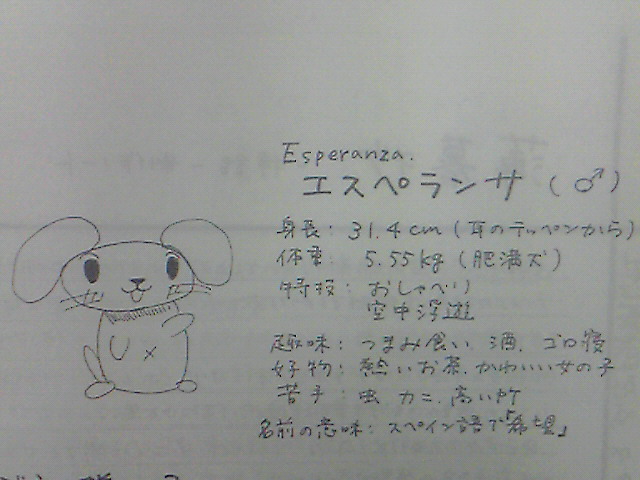 Esperanza.
エスペランサ (♂)
身長: 31.4cm (耳のテッペンから)
体重: 5.55kg (肥満ズ)
特技: おしゃべり
空中浮遊
趣味: つまみ食い 酒. ゴロ寝
好物: 熱いお茶. かわいい女の子
苦手: 虫 カニ. 高い所
名前の意味: スペイン語で「希望」